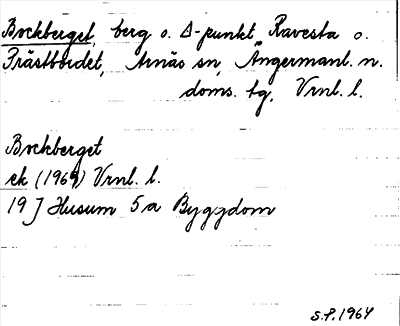 Bockberget, berg o. Δ-punkt Ravesta o.
Prästbordet, Arnäs sn, Ångermanl. n.
doms. tg, Vrnl. l.
Bockberget
ek (1964) Vrnl. l.
19 J Husum 5 a Byggdom
S.P. 1964